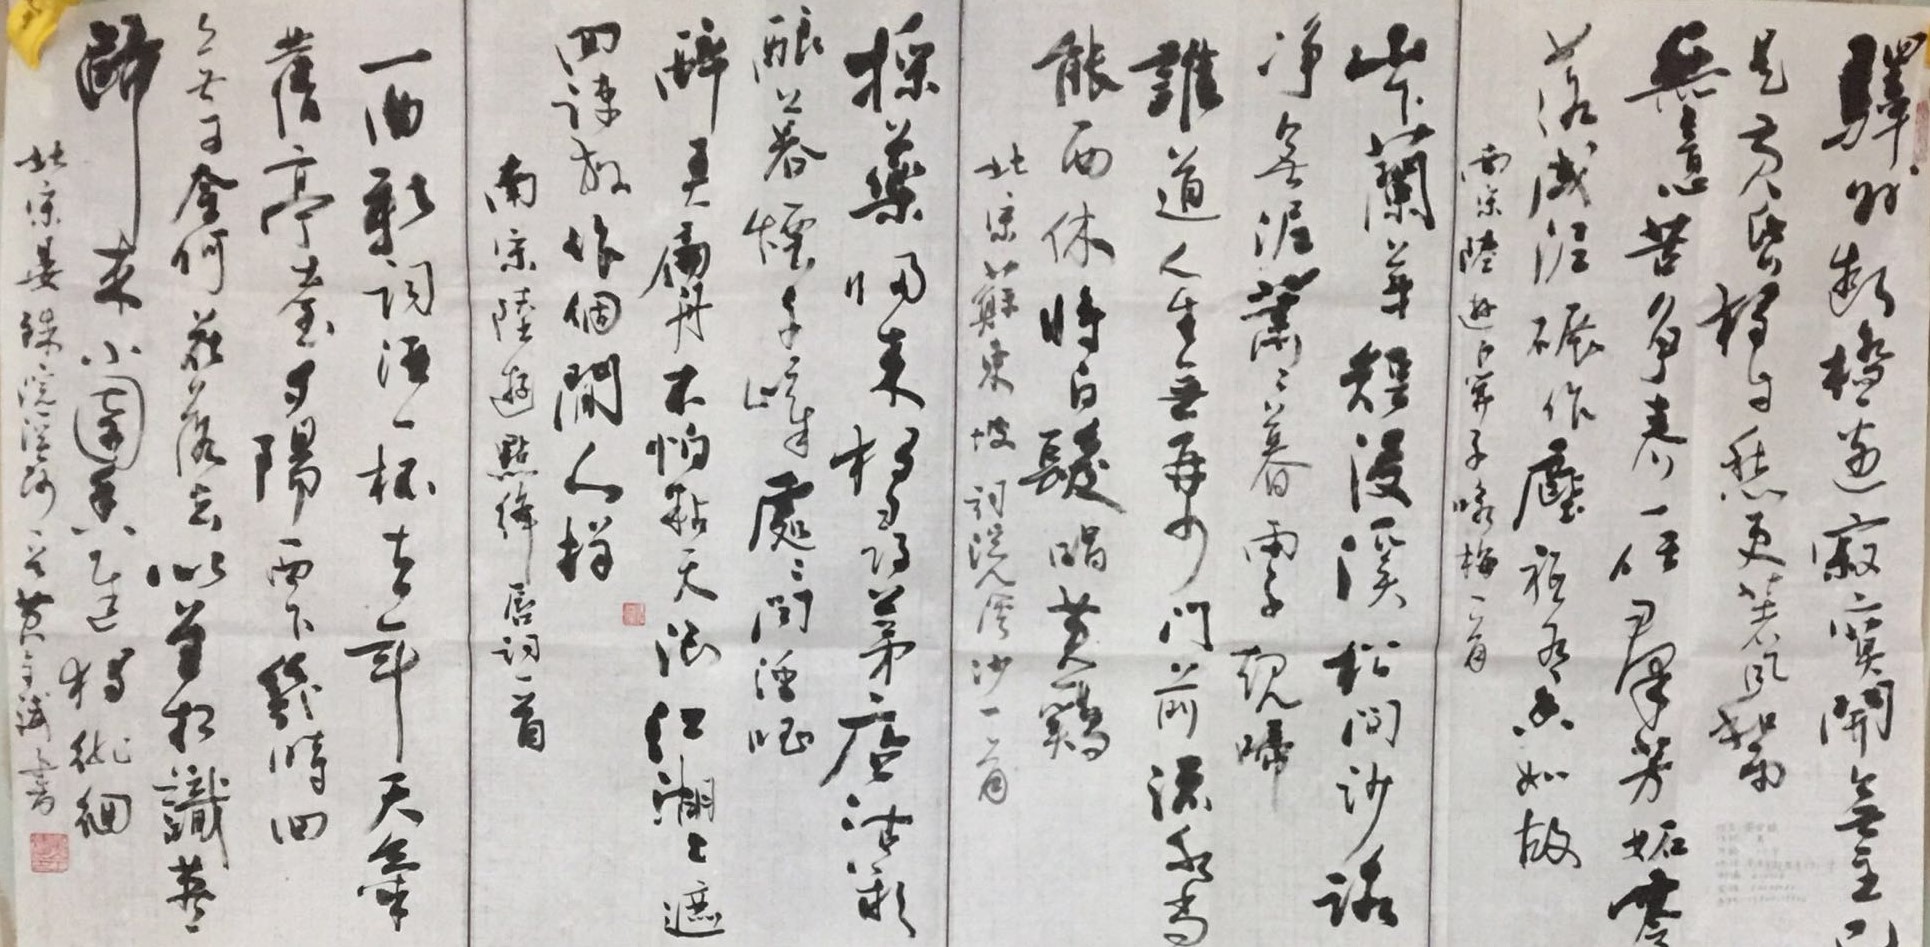 驛外斷橋邊寂寞開無主已
是黃昏獨自愁更著風和雨
無意苦爭春一任羣芳妬零
落成泥碾作塵衹有香如故
南宋陸游卜算子咏梅一首
山下蘭芽短浸溪松間沙路
净無泥蕭〻暮雨子規啼
誰道人生無再少門前流水尚
能西休將白髮唱黃鷄
北宋蘇東坡詞浣溪沙一首
採藥歸來獨尋茅店沽新
釀暮煙千嶂處〻聞漁唱
醉弄扁舟不怕黏天浪江湖上遮
回疎放作個閒人樣
南宋陸游點絳唇詞一首
一曲新詞酒一杯去年天氣
舊亭臺夕陽西下幾時回
無可奈何花落去似曾相識燕
歸來小園香徑獨徘徊
北宋晏殊浣溪沙